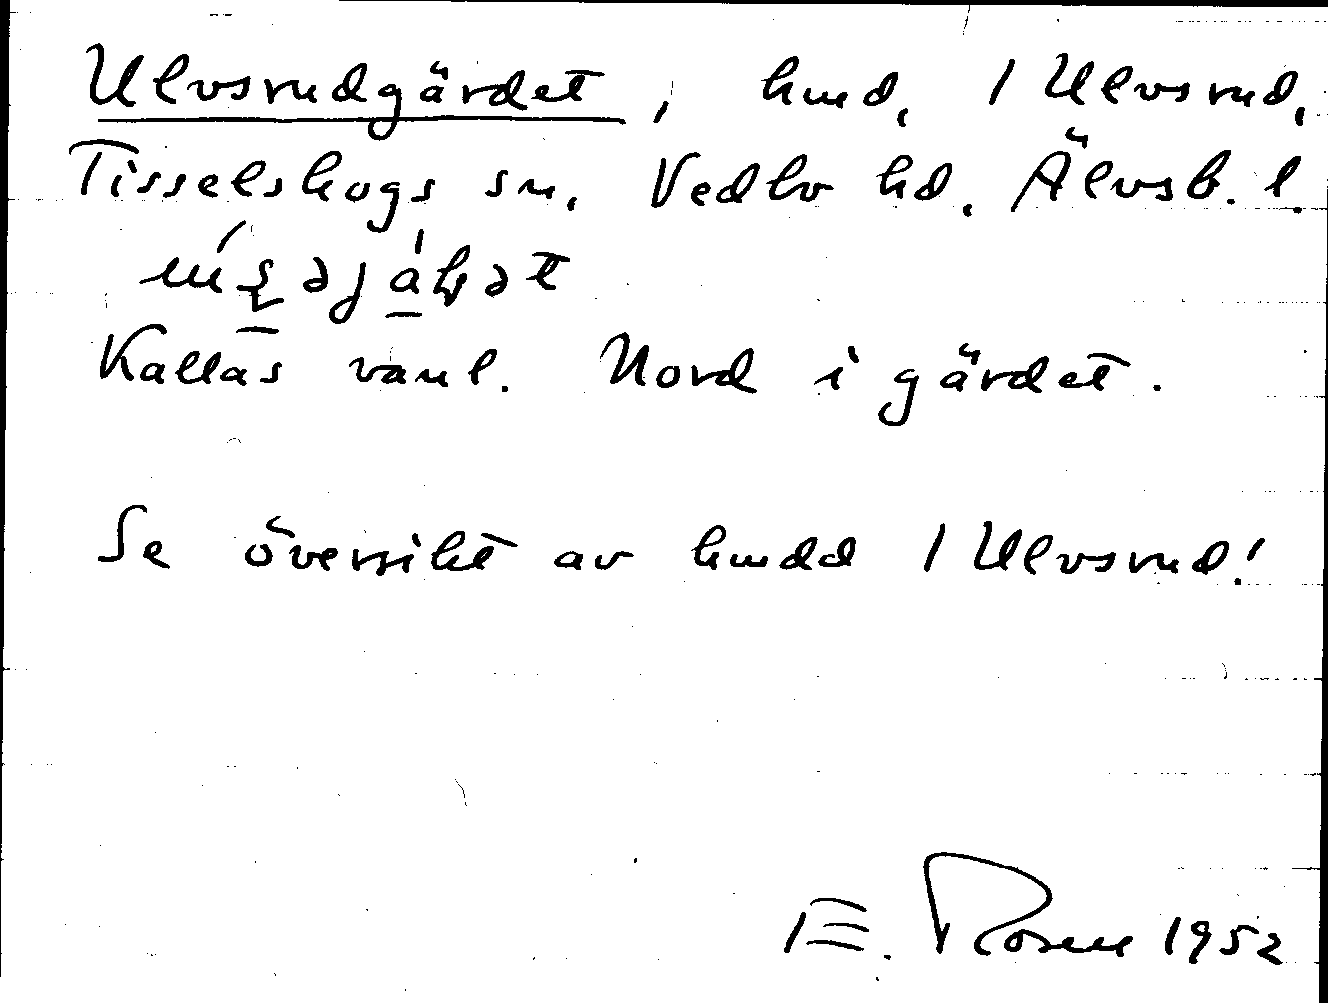 Ulvsrudgärdet, hmd, 1 Ulvsrud,
Tisselskogs sn, Vedbo hd, Älvsb. l.
Kallas vanl. Nord i gärdet.
Se översikt av hmdd 1 Ulvsrud!
E. Rosell 1952